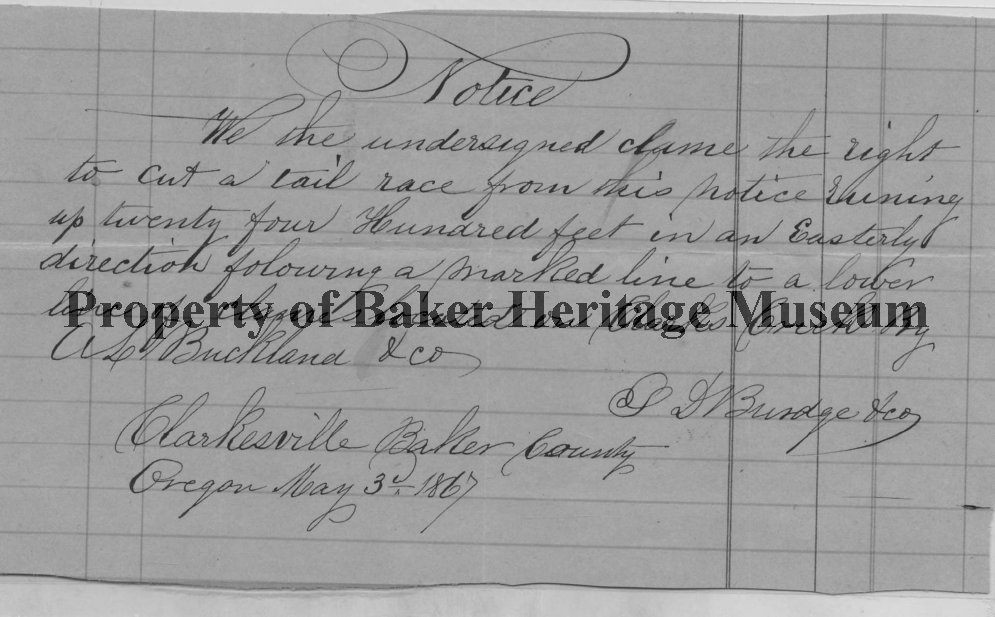 Notice
We the undersigned clame the right
to cut a tail race from this notice Runing
up twenty four Hundred feet in an Easterly
direction folowing a marked line to a lower
line of claims located on Clarks Creek by
Property of Baker Heritage Museum
A L Buckland & co
S D Burdge & co
Clarkesville Baker County
Oregon May 3d 1867